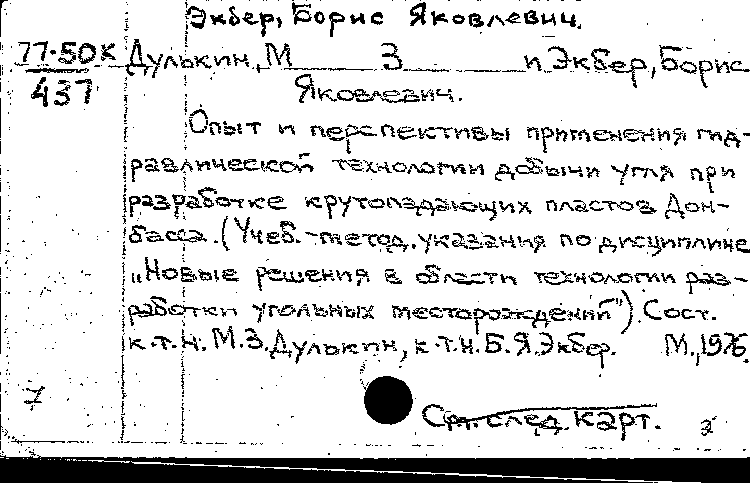 Экбер, Борис Яковлевич.
77-50К Дулькин, М З и Экбер, Борис
437 Яковлевич.
Опыт и перспективы применения гид-
равлической технологии добычи угля при
разработке крутопадающих пластов Дон-
басса. (Учеб.-метод. указания по дисциплине
„Новые решения в области технологии раз-
работки угольных месторождений"). Сост.
к.т.н. М.З. Дулькин, к.т.н. Б.Я. Экбер. М., 1976.
7
См. след. карт. 2